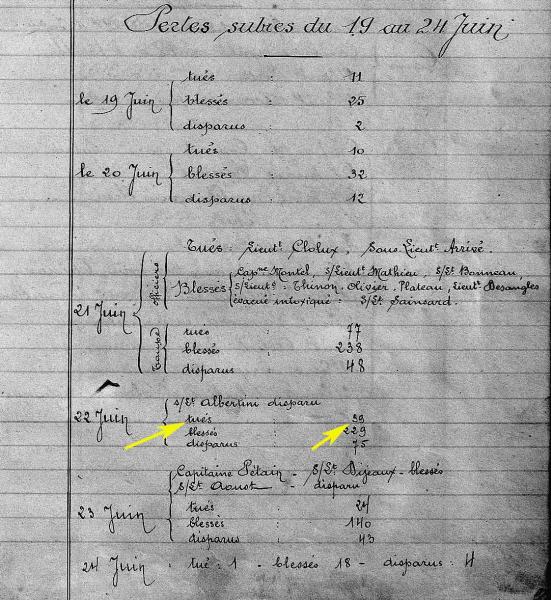 Pertes subies du 19 au 24 Juin
tués : 11
le 19 Juin blessés : 25
disparus : 2
tués : 10
le 20 Juin blessés : 32
disparus : 12
Tués : Lieut^t Cholux, Sous Lieut^t Arrivé.
21 Juin officiers Blessés Cap^ne Montel, s/Lieut^t Mathieu, S/S^Lt Bonneau,
s/Lieut^s : Thinon, Olivier, Plateau, Lieut^t Desangles
évacué intoxiqué : S/L^t Sainsard.
Troupe tués : 77
blessés : 238
disparus : 48
s/L^t Albertini disparu
22 Juin tués : 59
blessés : 229
disparus : 75
Capitaine Pétain - S/L^t Dijeaux - blessés
S/L^t - disparu
23 Juin tués : 24
blessés : 140
disparus : 43
24 Juin : tué : 1 - blessés 18 - disparus : 4